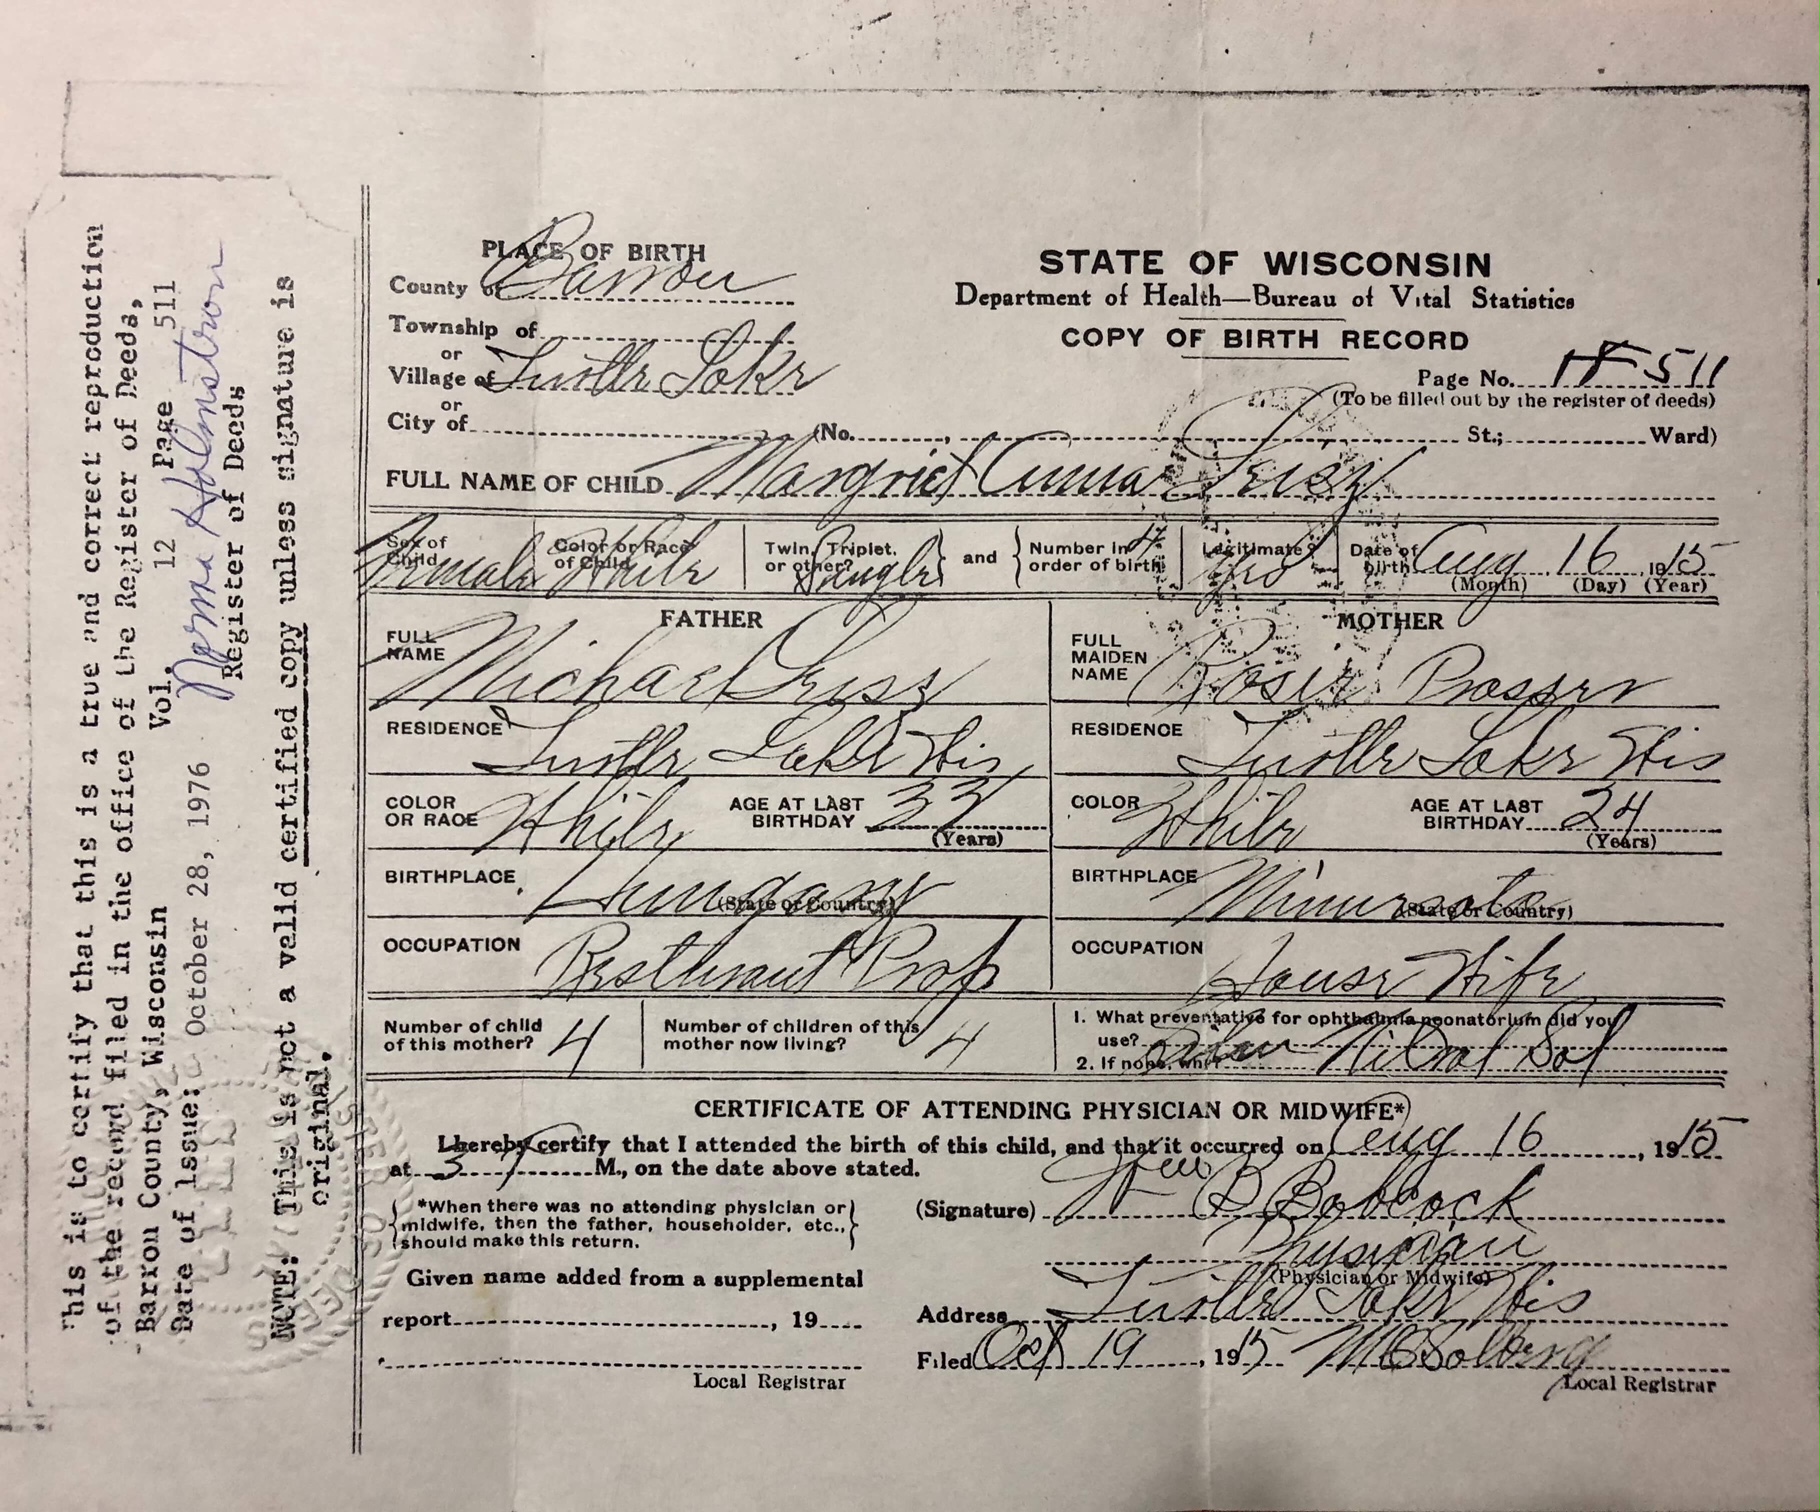 This is to certify that this is a true and correct reproduction
of the record filed in the office of the Register of Deeds,
Barron County, Wisconsin Vol. 12 Page 511
Date of Issue: October 28, 1976 Norma Holmstrom
Register of Deeds
NOTE: This is not a valid certified copy unless signature is
original.
PLACE OF BIRTH
County of Barron
Township of
or
Village of Turtle Lake
or
City of (No. , St.; Ward)
STATE OF WISCONSIN
Department of Health—Bureau of Vital Statistics
COPY OF BIRTH RECORD
Page No. 511
(To be filled out by the register of deeds)
FULL NAME OF CHILD Margriet Anna Leisz
Sex of Child Female Color or Race of Child White Twin, Triplet, or other? Single and Number in order of birth 4 Legitimate? Yes Date of birth Aug 16 1915
(Month) (Day) (Year)
FATHER
FULL NAME Michael Leisz
RESIDENCE Turtle Lake Wis
COLOR OR RACE White AGE AT LAST BIRTHDAY 33
(Years)
BIRTHPLACE Hungary
(State or Country)
OCCUPATION Resturant Prop
MOTHER
FULL MAIDEN NAME Rosie Prosser
RESIDENCE Turtle Lake Wis
COLOR White AGE AT LAST BIRTHDAY 24
(Years)
BIRTHPLACE Minnesota
(State or Country)
OCCUPATION House Wife
Number of child of this mother? 4 Number of children of this mother now living? 4
1. What preventative for ophthalmia neonatorium did you
use? Silver Nitrat Sol
2. If none, why?
CERTIFICATE OF ATTENDING PHYSICIAN OR MIDWIFE*
I hereby certify that I attended the birth of this child, and that it occurred on Aug 16, 1915
at 3 M., on the date above stated.
*When there was no attending physician or
midwife, then the father, householder, etc.,
should make this return.
Given name added from a supplemental
report , 19
Local Registrar
(Signature) B Babcock
Physician
(Physician or Midwife)
Address Turtle Lake Wis
Filed Oct 19, 1915 M C Solberg
Local Registrar